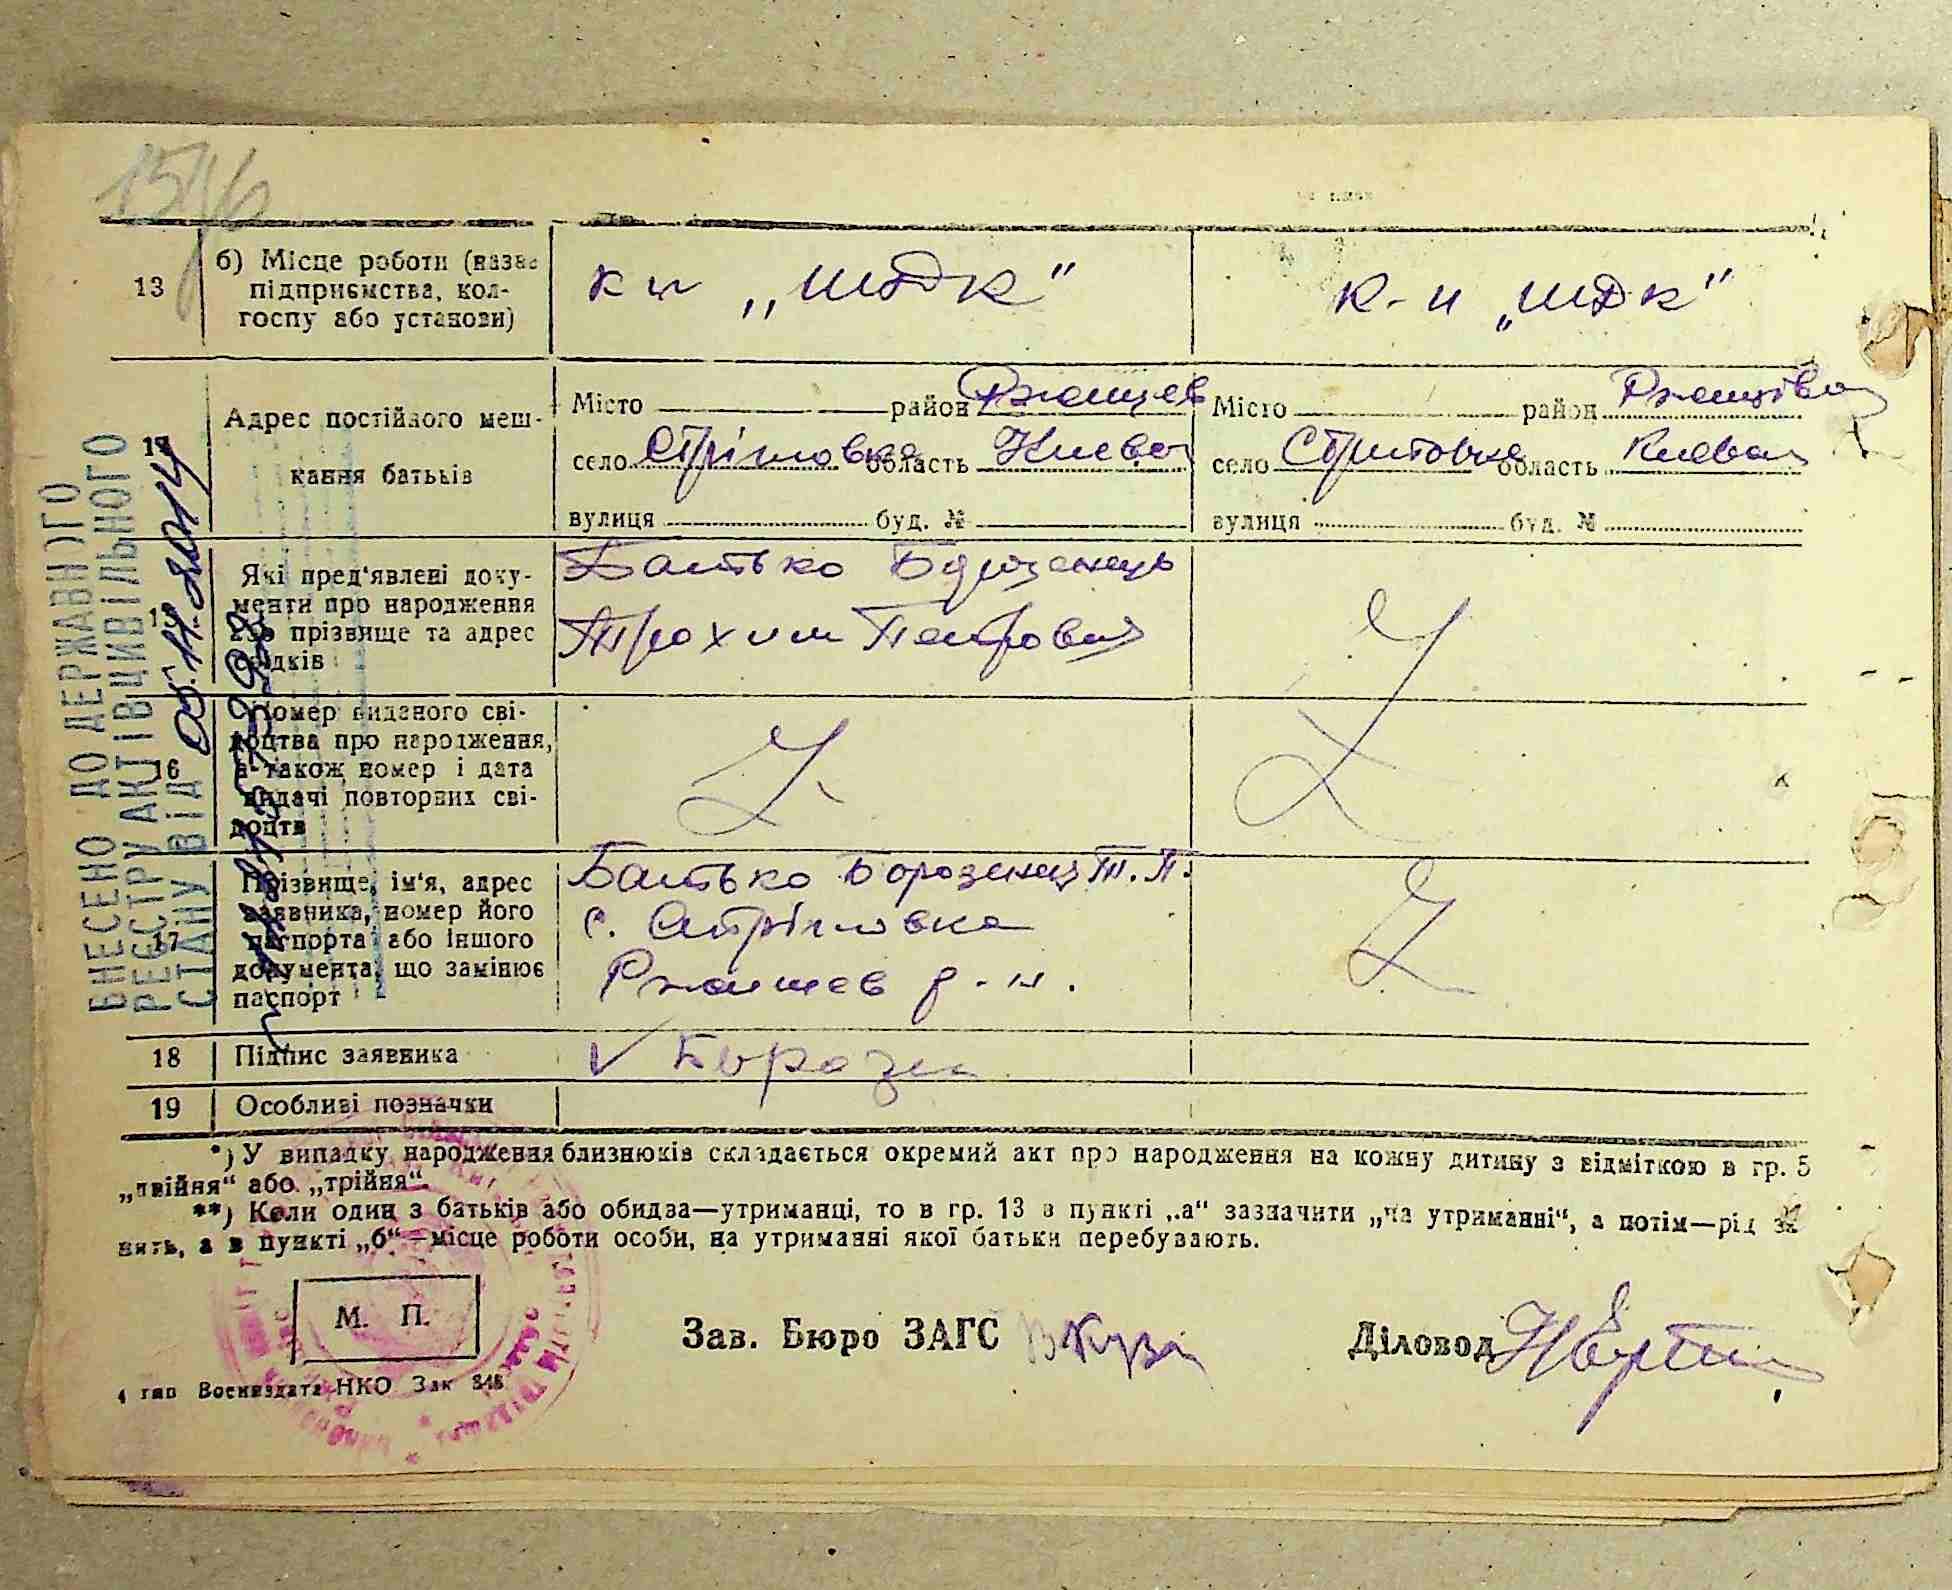 1546
13
б) Місце роботи (назва
підприємства, кол-
госпу або установи)
к н „ШДК"
к-н „ШДК"
Адрес постійного меш-
кання батьків
Місто район Ржищев
село Стрітовка область Києва
вулиця буд. №
Місто район Ржищева
село Стритовка область Києва
вулиця буд. №
Які пред'явлені доку-
менти про народження
або прізвище та адрес
свідків
Батько Борозенець
Трохим Петрович
16
Номер виданого сві-
доцтва про народження,
а також номер і дата
видачі повторних сві-
доцтв
17
Прізвище, ім'я, адрес
заявника, номер його
паспорта або іншого
документа, що замінює
паспорт
Батько Борозенец Т. П.
с. Стрітовка
Ржищев р-н.
18
Підпис заявника
Борозе
19
Особливі позначки
*) У випадку народження близнюків складається окремий акт про народження на кожну дитину з відміткою в гр. 5
„двійня“ або „трійня“.
**) Коли один з батьків або обидва—утриманці, то в гр. 13 в пункті „а“ зазначити „на утриманні“, а потім—рід за
нять, а в пункті „б“—місце роботи особи, на утриманні якої батьки перебувають.
М. П.
Зав. Бюро ЗАГС
Діловод
4 тип Воениздата НКО Зак 848
ВНЕСЕНО ДО ДЕРЖАВНОГО
РЕЄСТРУ АКТІВ ЦИВІЛЬНОГО
СТАНУ ВІД 05.11.2014